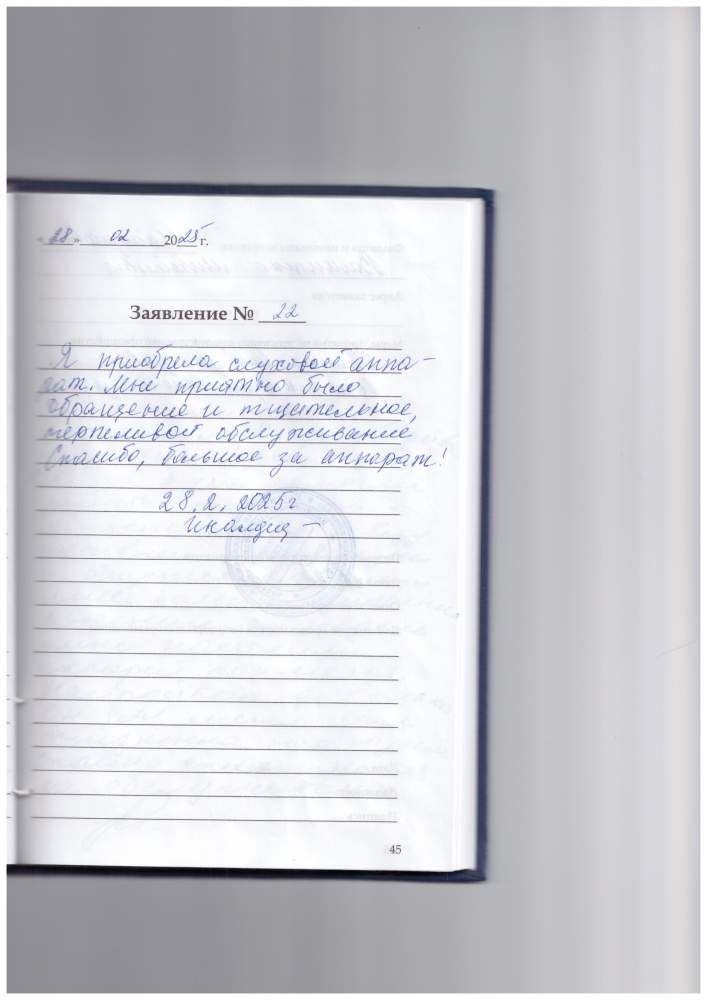 « 28 » 02 2025 г.
Заявление № 22
Я приобрела слуховой аппа-
рат. Мне приятно было
обращение и тщательное,
терпеливой обслуживание
Спасибо, большое за аппарат!
28.2.2025 г
45